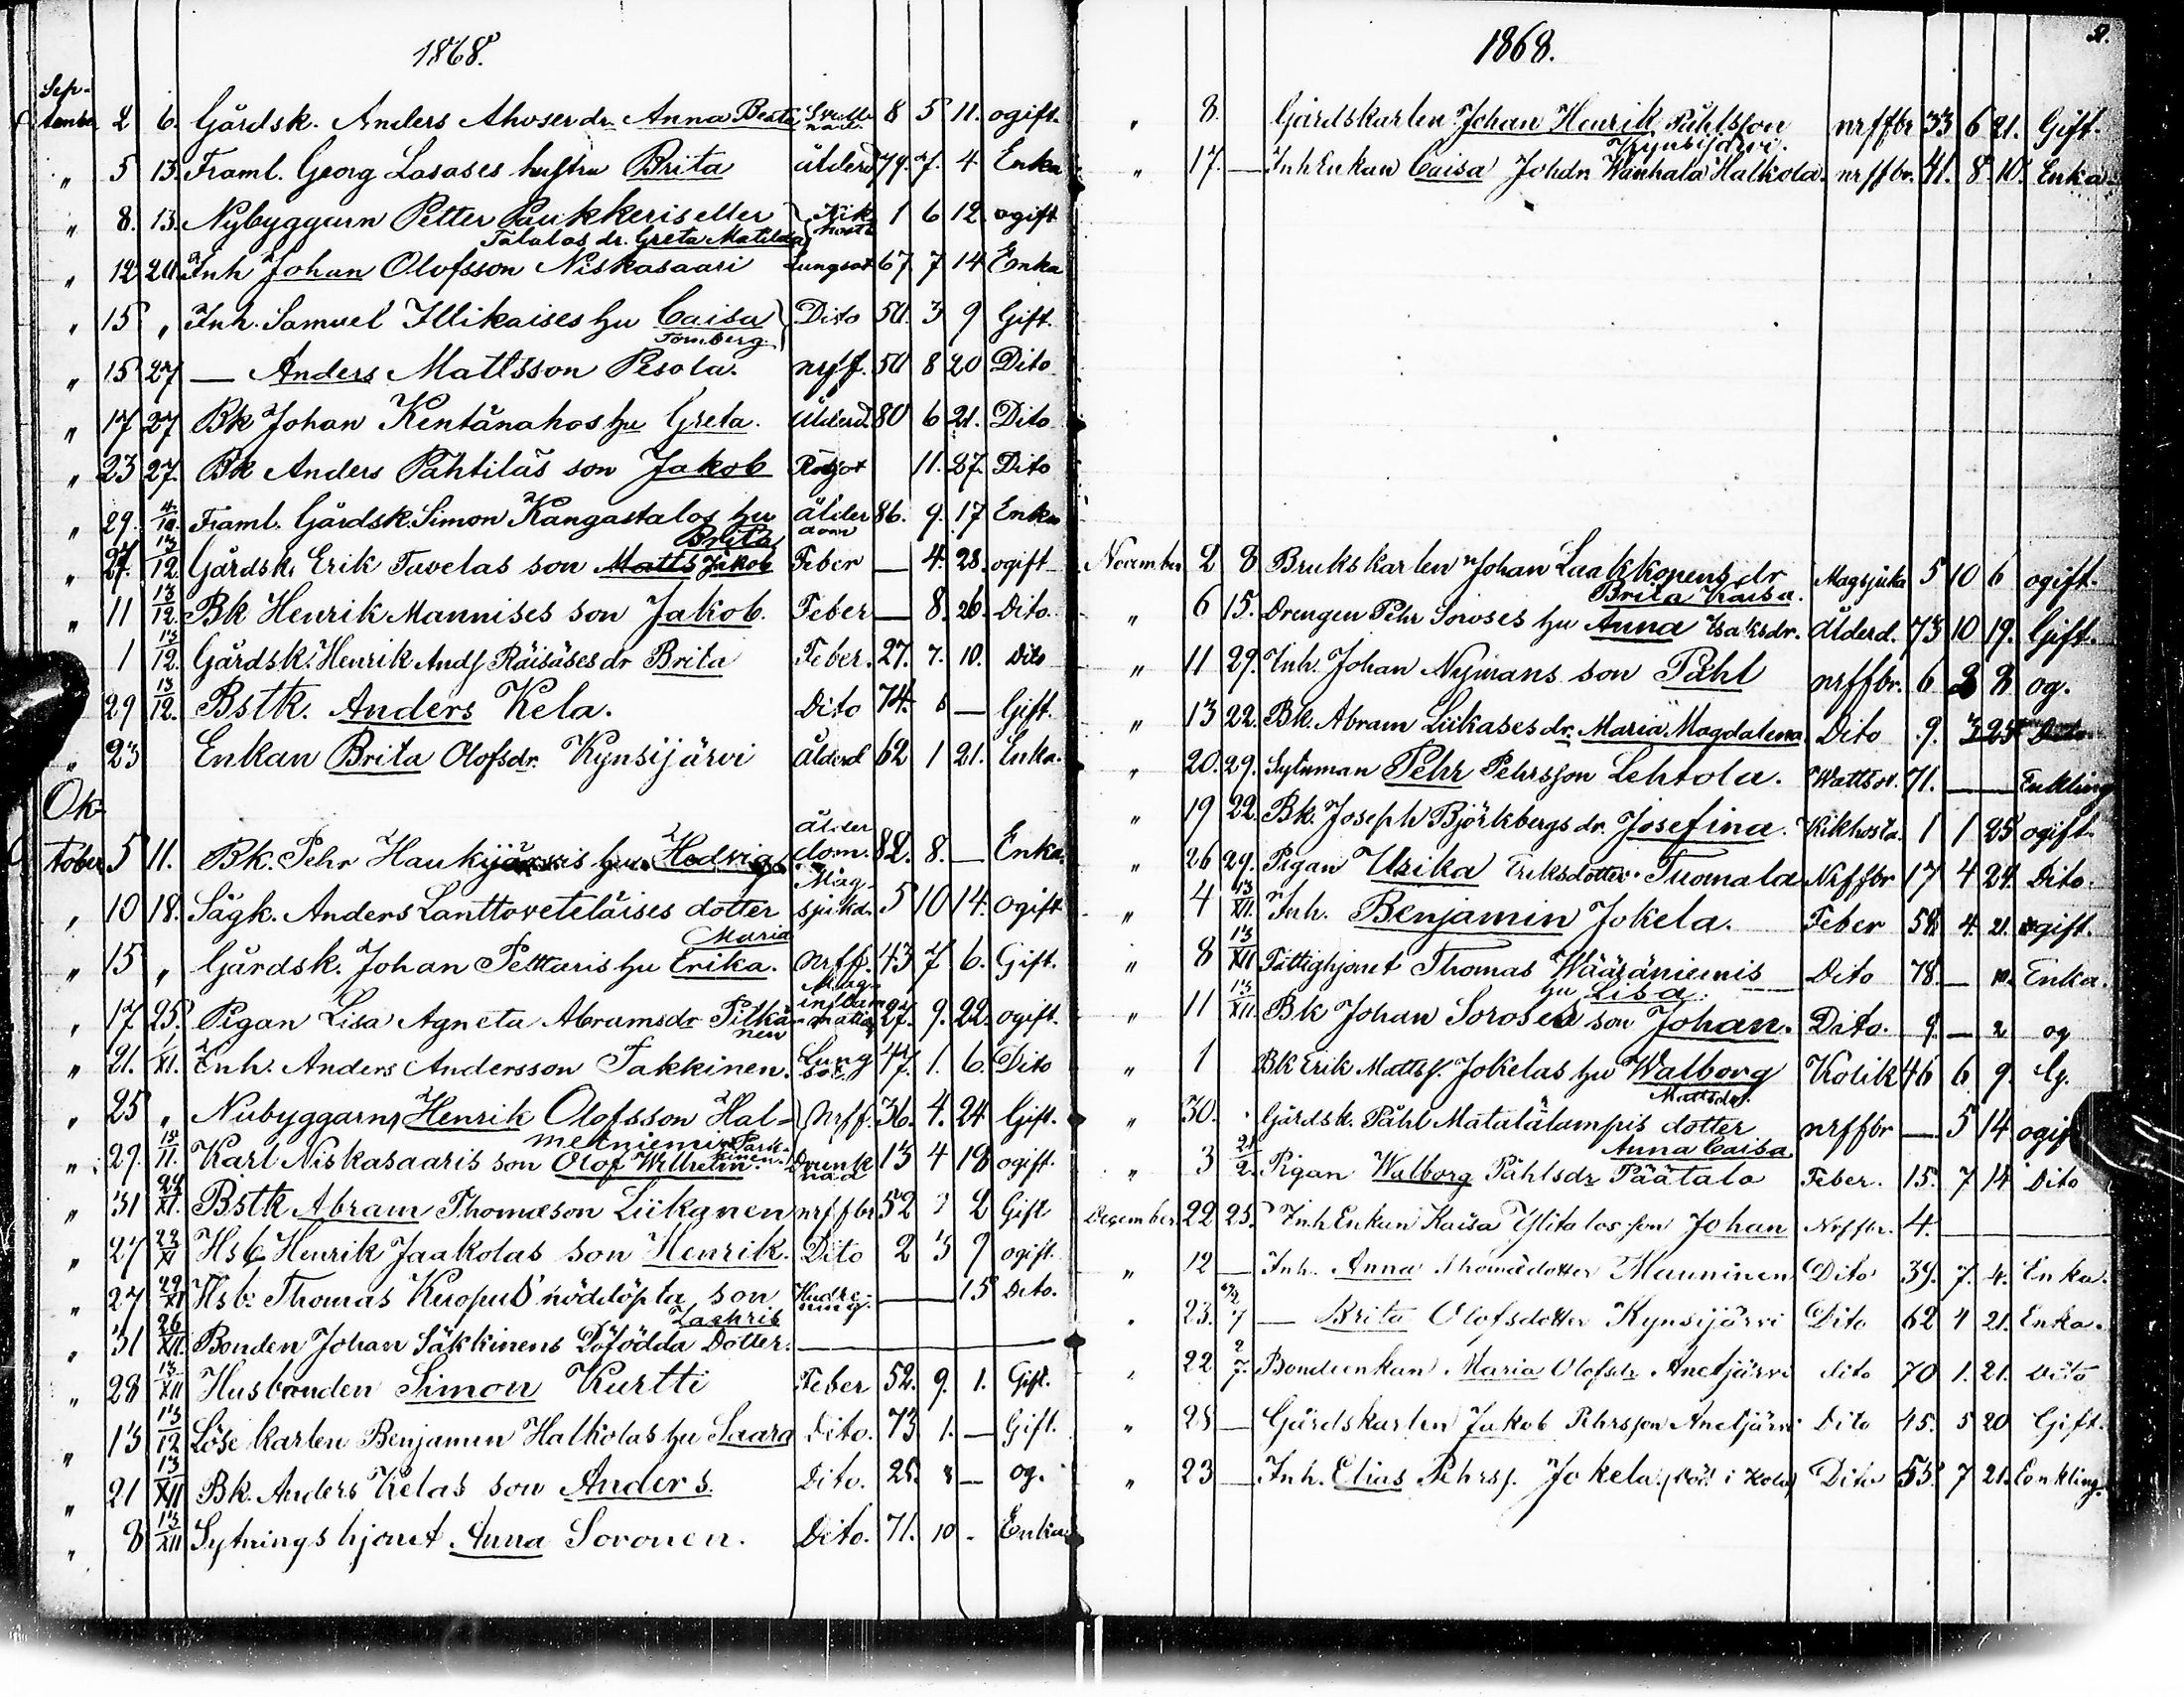 1868.
Sep-
tember 2 6. Gårdsk. Anders Ahoser dr. Anna Beata 8 5 11. ogift.
" 5 13. Framl. Georg Lasases hustru Brita ålderd 79. 7. 4 Enka
" 8. 13. Nybyggarn Petter Paukkeris eller Kik- 1 6 12 ogift
Talalas dr. Greta Matilda hosta
" 12 20 Inh Johan Olofsson Niskasaari Lungsot 67 7 14 Enka
" 15 " Inh. Samuel Illikaises hu Caisa Dito 50. 3 9 Gift.
Tornberg
" 15 27 — Anders Mattsson Pesola. nrff. 50 8 20 Dito
" 17 27 Bk Johan Kentänahos hu Greta. Ålderd 80 6 21. Dito
" 23 27. Bk Anders Pahtilas son Jakob Rödsot 11. 27. Dito
" 29. 4/10. Framl. Gårdsk. Simon Kangastalos hu ålder 86. 9. 17 Enka
Brita dom
" 27. 13/12 Gårdsk. Erik Tavelas son Matts Jakob Feber — 4. 28. ogift
" 11 13/12. Bk Henrik Mannises son Jakob. Feber — 8. 26. Dito.
1 13/12. Gårdsk. Henrik Ands Räisäses dr Brita Feber. 27. 7. 10. Dito
29 13/12. Bstk. Anders Kela. Dito 74. 8 — Gift.
" 23 Enkan Brita Olofsdr. Kynsijärvi Ålderd 62 1 21. Enka.
Ok-
tober 5 11. Bk. Pehr Haukijärvis hu Hedvig ålder
dom. 82. 8. — Enka.
" 10 18. Sågk. Anders Lanttoveteläises dotter Mag-
sjukd. 5 10 14. ogift
Maria
" 15 " Gårdsk. Johan Pettaris hu Erika. nrff. 43 7 6. Gift.
" 17 25. Pigan Lisa Agneta Abramsdr Pitkä- Mag-
inflam-
matia 27. 9. 22. ogift.
nen
" 21. 1/XI. Inh. Anders Andersson Takkinen. Lung
sot. 47. 1. 6. Dito
" 25 " Nubyggarn Henrik Olofsson Hal- nrff. 36. 4. 24 Gift.
metniemi
" 29. 15/11. Karl Niskasaaris son Olof Wilhelm Park-
kinen. Drunk
nad 13 4 18 ogift.
" 31 22/XI. Bstk Abram Thomæson Liikanen nrffbr 52 2 Gift
" 27 22/XI Hsb Henrik Jaakolas son Henrik. Dito 2 3 9 ogift.
" 27 29/XI Hsb. Thomas Kuopus nöddöpta son — — 15 Dito.
Zachris
" 31 26/XII Bonden Johan Säkkinens Döfödda Dotter.
" 28 13/XII Husbonden Simon Kurtti Feber 52. 9. 1. Gift.
" 13 13/12 Löse karlen Benjamin Halkolas hu Saara Dito. 73 1. — Gift.
" 21 13/XII Bk. Anders Kelas son Anders. Dito. 25. 8 — og.
" 8 13/XII Sytningshjonet Anna Soronen. Dito. 71. 10 - Enka
1868.
" 8. Gårdskarlen Johan Henrik Påhlsson nrffbr 33 6 21. Gift.
Kynsijärvi.
" 17. — Inh Enkan Caisa Johdr. Wanhala Halkola. nrffbr. 41. 8. 10. Enka.
November 2 8 Brukskarlen Johan Laakkonens dr Magsjuka 5 10 6 ogift.
Brita Kaisa.
" 6 15. Drengen Pehr Soroses hu Anna Isaksdr. Ålderd. 73 10 19. Gift.
" 11 29. Inh. Johan Nymans son Påhl nrffbr. 6 2 8 og.
" 13 22. Bk. Abram Liikases dr. Maria Magdalena Dito 9. 3 25 Dito
" 20. 29. Sytnman Pehr Pehrsson Lehtola. Wattsot. 71. — — Enkling
" 19 22. Bk. Joseph Björkbergs dr. Josefina. Kikhosta. 1 1 25 ogift.
" 26 29. Pigan Ulrika Eriksdotter Tuomala Nrffbr 17 4 24. Dito.
" 4 13/XII. Inh. Benjamin Jokela. Feber 58 4. 21. ogift.
" 8 13/XII Fattighjonet Thomas Wääräniemis Dito 78. — Enka.
hu Lisa.
" 11 13/XII. Bk Johan Soroses son Johan. Dito. 9. — 2 og
" 1 Bk Erik Matts. Jokelas hu Walborg Kolik 46 6 9. G.
Mattsdr.
" 30. Gårdsk. Påhl Matalalampis dotter nrffbr — 5 14 ogif
Anna Caisa.
" 3 21/2. Pigan Walborg Påhlsdr Päätalo Feber. 15. 7 14 Dito
December 22 25. Inh Enkan Kaisa Ylitalos son Johan Nrffbr. 4. — —
" 12 — Inh. Anna Thomædotter Manninen Dito 39. 7. 4. Enka.
" 23. — Brita Olofsdotter Kynsijärvi Dito 62 1 21. Enka.
" 22 2/7. Bondeenkan Maria Olofsdr Anetjärvi dito 70 1. 21. Dito
" 28 — Gårdskarlen Jakob Pehrsson Anetjärvi Dito 45. 5 20 Gift.
" 23 — Inh. Elias Pehrss. Jokela (död i Kola) Dito 55. 7 21. Eenkling.